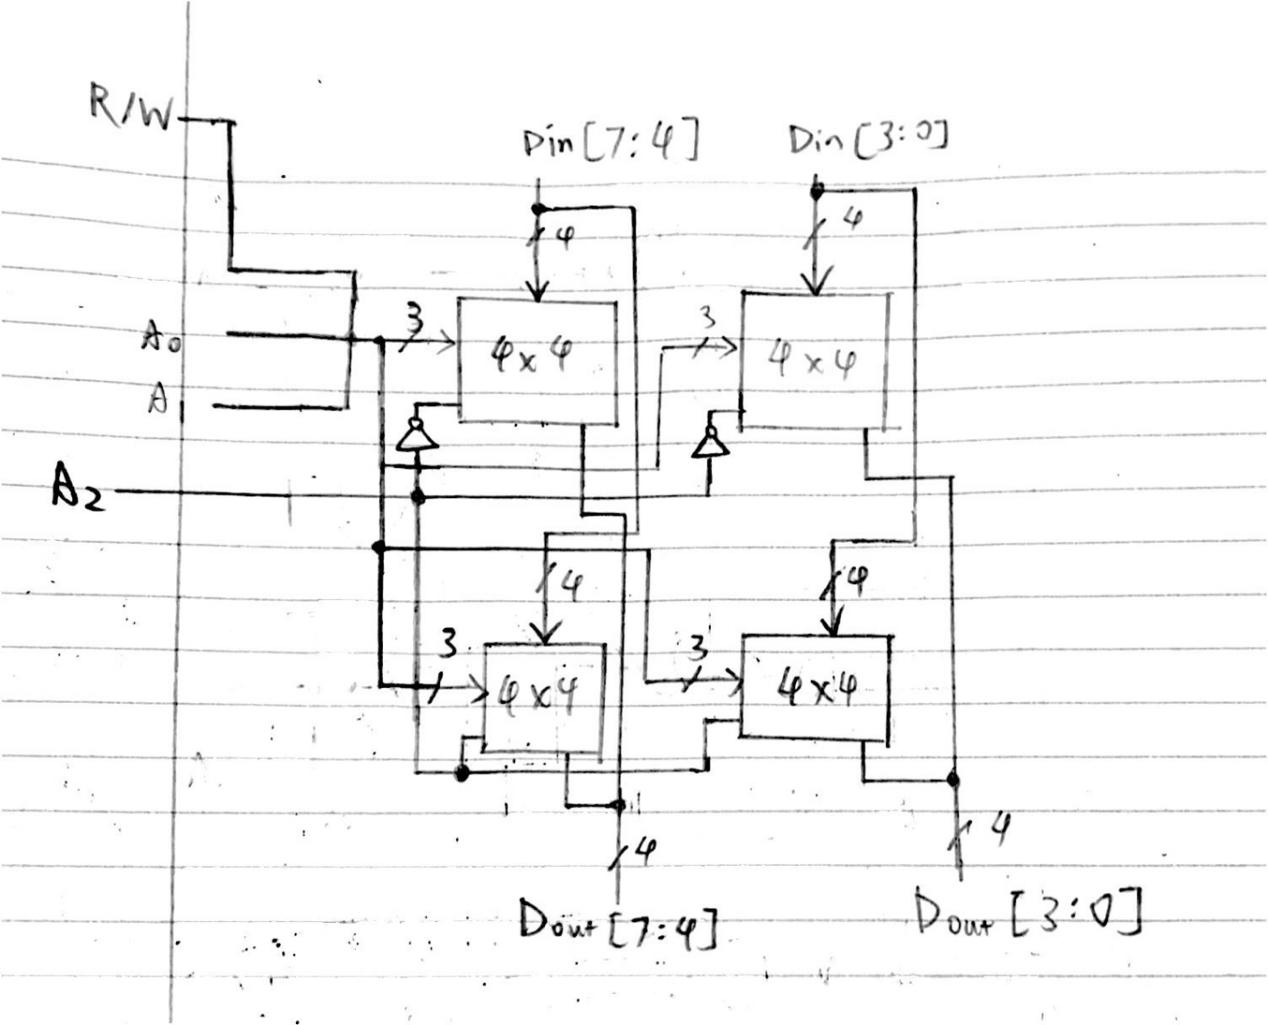 R/W
Din [7:4]
Din [3:0]
4
4
A0
3
4x4
3
4x4
A
A2
4
4
3
4x4
3
4x4
4
4
Dout [7:4]
Dout [3:0]